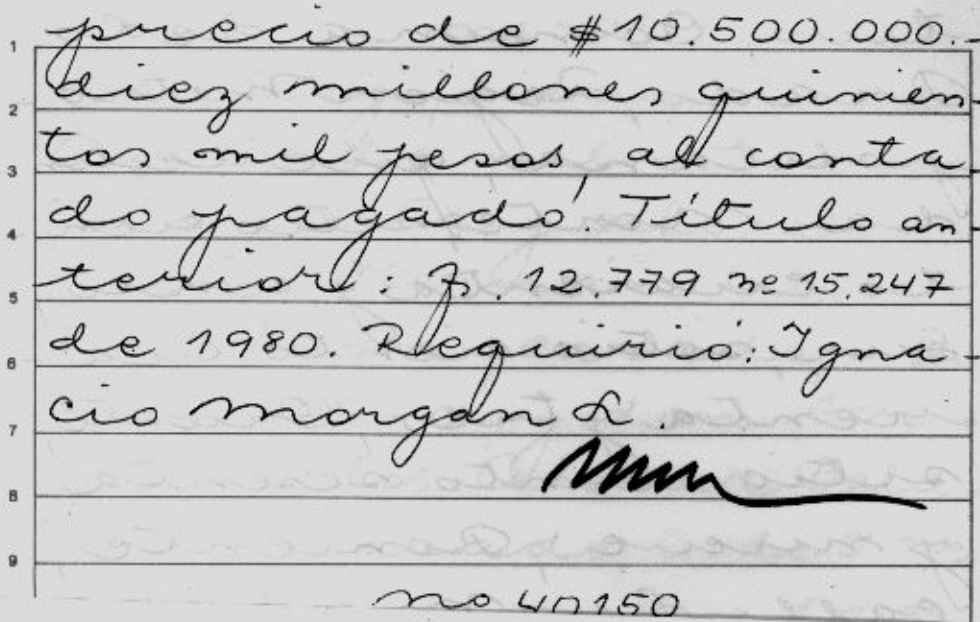 precio de $10.500.000.-
1
diez millones quinien-
2
tos mil pesos, al conta-
3
do pagado. Título an-
4
terior: Fs. 12.779 nº 15.247
5
de 1980. Requirió: Igna-
6
cio Morgan L.
7
8
9